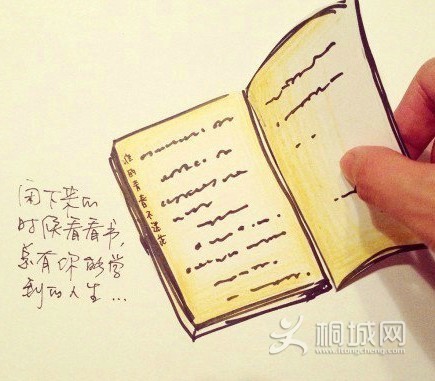 闲下来的
时候看看书,
总有你能学
到的人生...
谁的青春不迷茫
桐城网
www.itongcheng.com